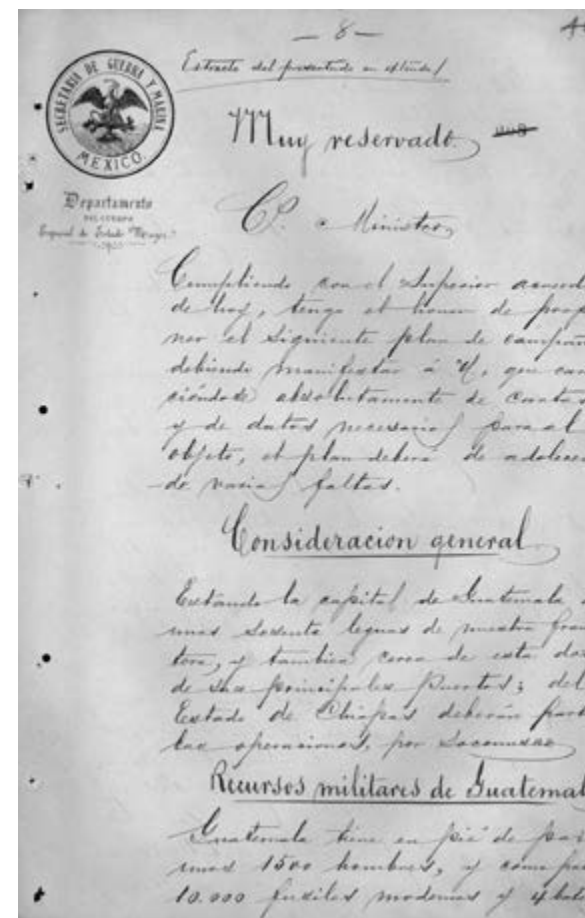 — 8 —
Extracto del presentado en
SECRETARIA DE GUERRA Y MARINA
MEXICO.
Muy reservado.
Departamento
DEL CUERPO
Especial de Estado Mayor
C. Ministro
Cumpliendo con el Superior acuerd
de hoy, tengo el honor de prop
ner el siguiente plan de campañ
debiendo manifestar á U, que car
ciéndose absolutamente de cartas
y de datos necesarios para el
objeto, el plan deberá de adolecer
de varias faltas.
Consideracion general
Estando la capital de Guatemala
unas sesenta leguas de nuestra fron
tera, y tambien cerca de esta dos
de sus principales Puertos; del
Estado de Chiapas deberán part
las operaciones, por Soconusco
Recursos militares de Guatemal
Guatemala tiene en pié de paz
unos 1500 hombres, y como
10.000 fusiles modernos y 4